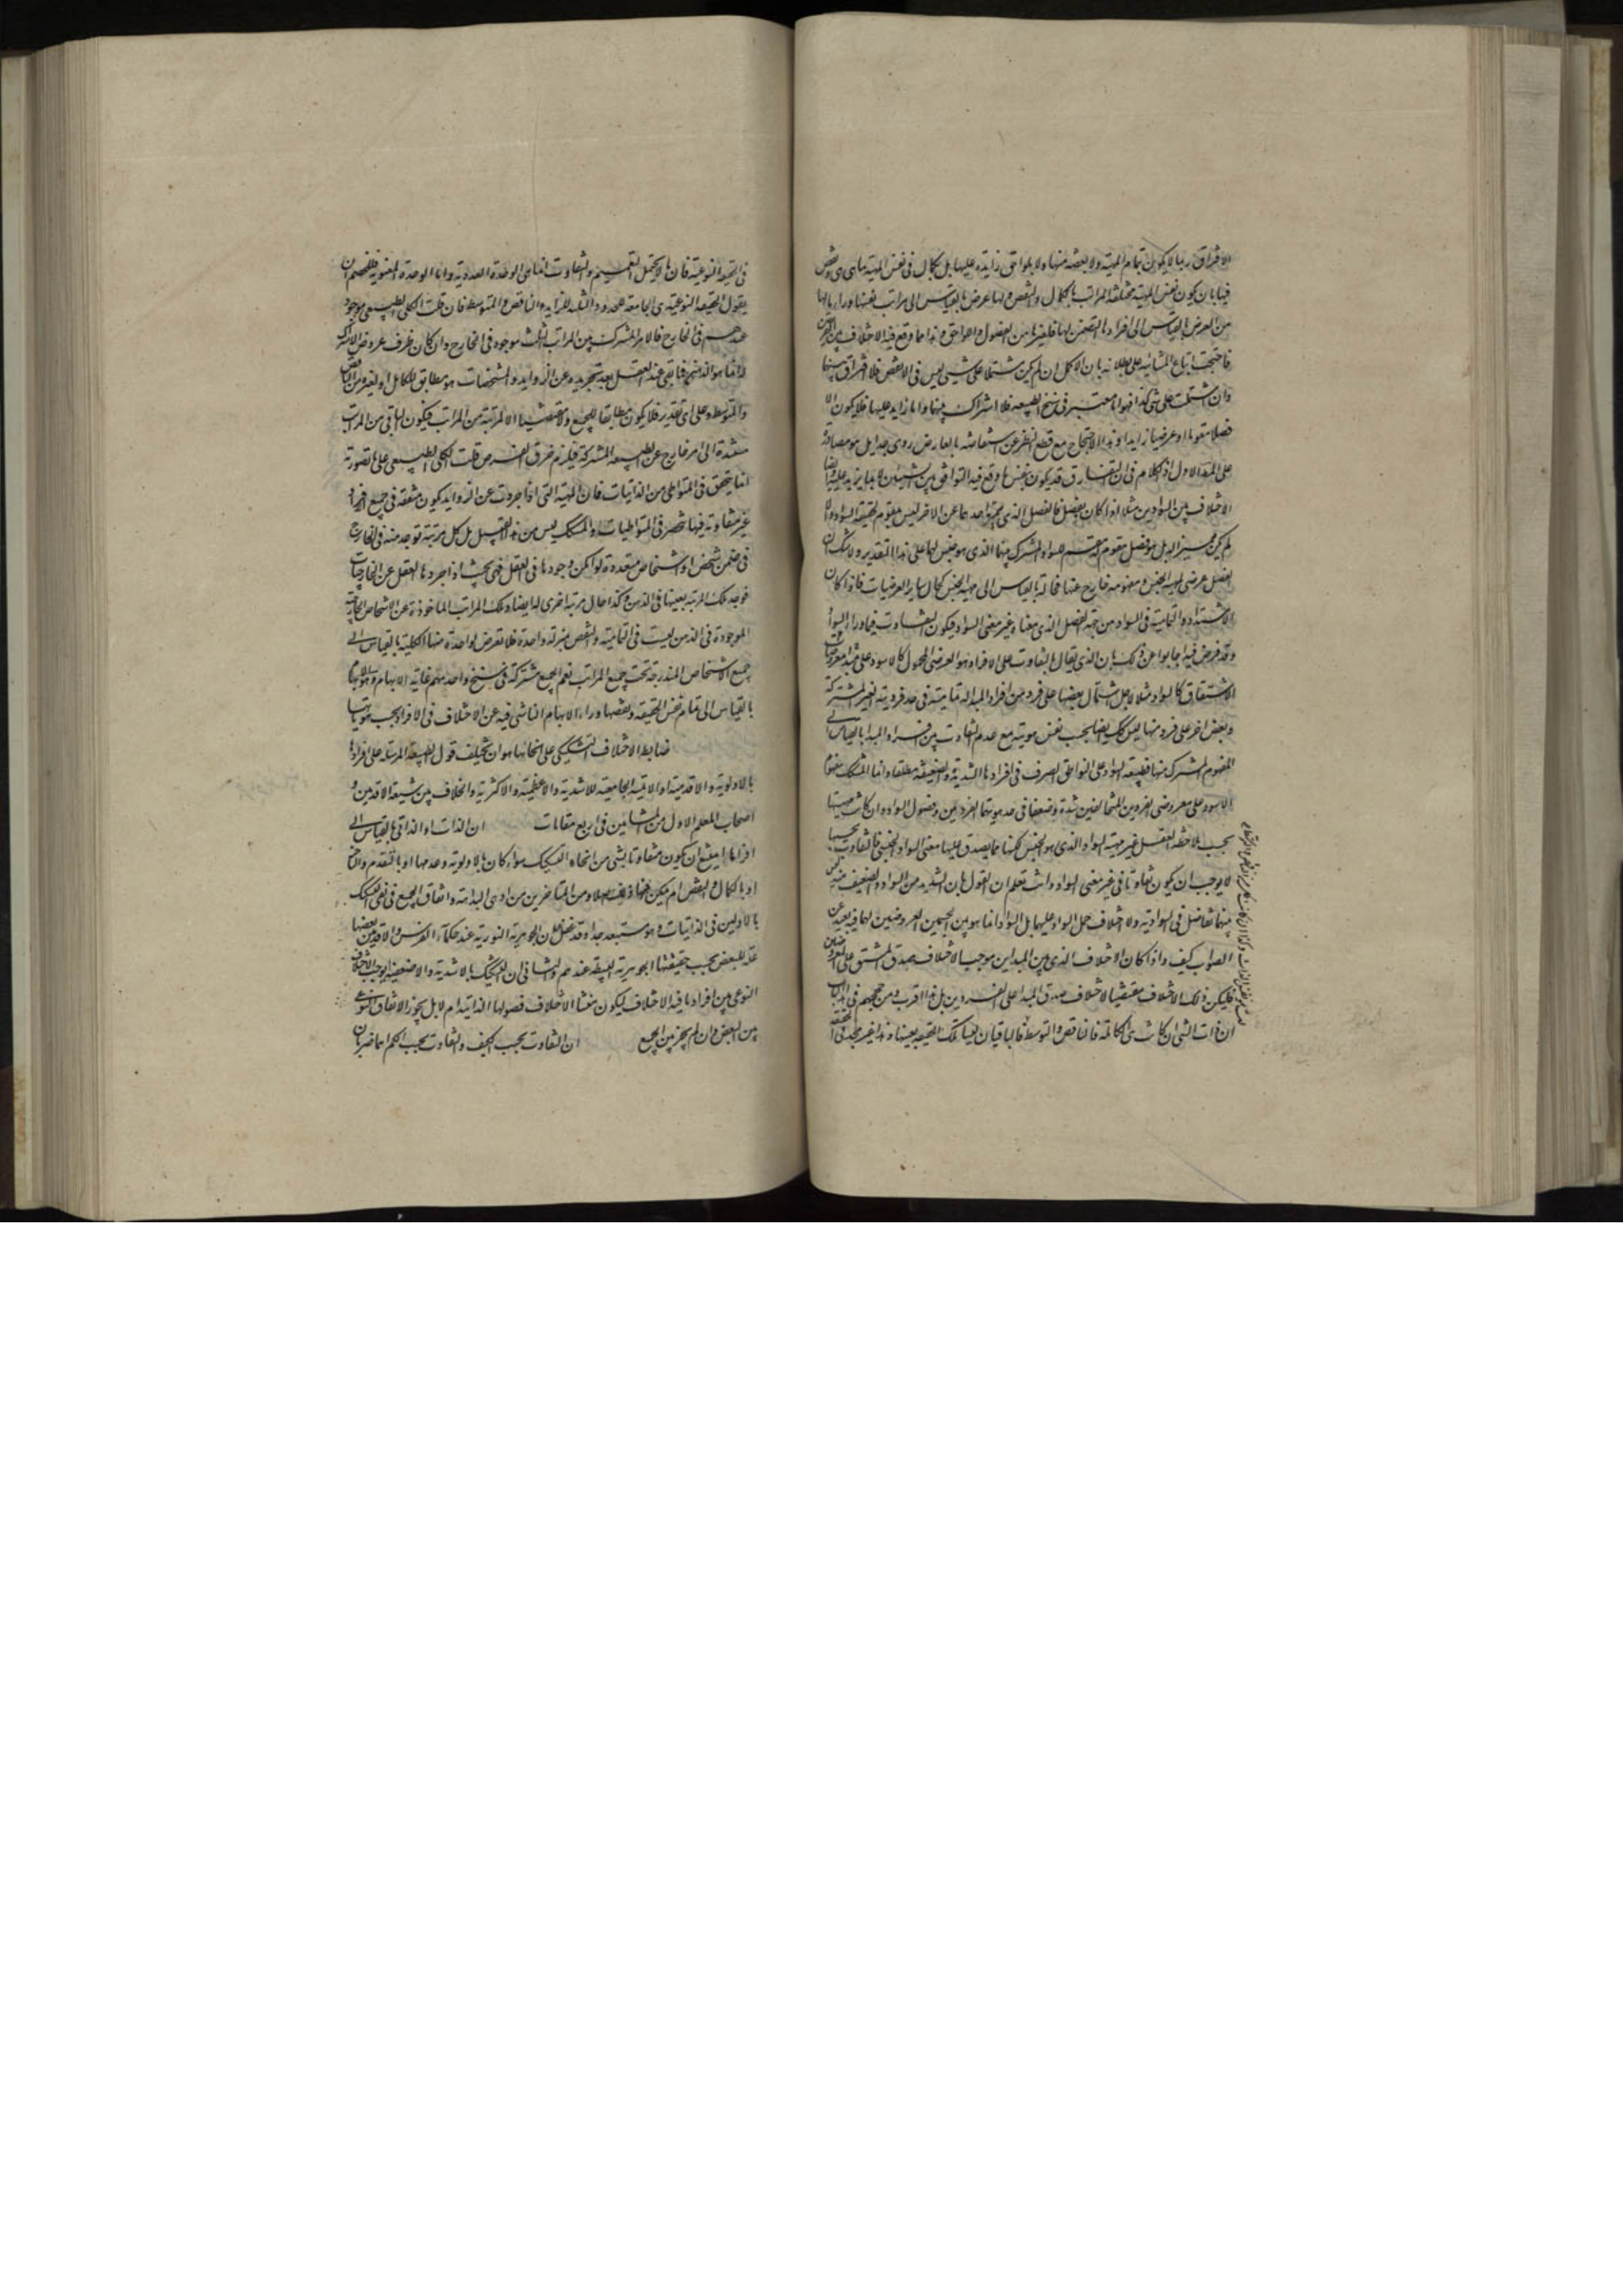 الافتراق ربما لا يكون بتمام المهية ولا ببعضه منها ولا بلواحق زايدة عليها بل بكمال فى نفس المهية بما هى هى ونقص
فيها بان يكون نفس المهية مختلفة المراتب بالكمال والنقص ولها عرض بالقياس الى مراتب نفسها وراء ما لها
من العرض بالقياس الى افرادها المتضمن لها ولغيرها من الفصول واللواحق وهذا مما وقع فيه الاختلاف بين الفريقين
فاحتجت اتباع المشائية على بطلانه بان الاكمل ان لم يكن مشتملا على شيئ ليس فى الانقص فلا افتراق بينهما
وان اشتملت على شئ كذا فهو اما معتبر فى سنخ الطبيعة فلا اشتراك بينهما واما زايد عليها فلا يكون الا
فصلا مقوما او عرضيا زايدا وهذا الاحتجاج مع قطع النظر عن انتقاضه بالعارض ردى جدا بل هو مصادرة
على المط الاول اذ الكلام فى ان التفارق قد يكون بنفس ما وقع فيه التوافق بين الشيئين لا بما يزيد عليه وايضا
الاختلاف بين السوادين مثلا اذا كان بفصل فالفصل الذى يميز احدهما عن الاخر ليس بمقوم لحقيقة السواد والا
لم يكن مميزا له بل هو فصل مقوم مقسم للسواد المشترك بينهما الذى هو جنس لهما على هذا التقدير ولا شك ان
الفصل عرضى لمهية الجنس ومفهومه خارج عنها فحاله بالقياس الى مهية الجنس كحال ساير العرضيات فاذا كان
الاشتداد والتمامية فى السواد من جهة الفصل الذى معناه غير معنى السواد فيكون التفاوت فيما وراء السواد
وقد فرض فيه اجابوا عن ذلك بان الذى يقال بالتفاوت على الافراد هو العرضى المحمول كالاسود على مبدا معروضات
الاشتقاق كالسواد مثلا لاجل اشتمال بعضها على فرد من افراد المبدا له تمامية فى حد فرديته الغير المشتركة
وبعض اخر على فرد منها ليس كك ايضا بحسب نفس هويته مع عدم التفاوت بين افراد المبدا بالقياس الى
المفهوم المشترك بينها فطبيعة السواد على التواطى الصرف فى افرادها الشديدة والضعيفة مطلقا وانما المشكك مفهوم
الاسود على معروضى الفردين المتخالفين شدة وضعفا فى حد هويتهما الفردين وفصول السواد وان كانت مهيتها
بحسب ملاحظة العقل غير مهية السواد الذى هو الجنس لكنها مما يصدق عليها معنى السواد الجنسى فالتفاوت بحسبها
لا يوجب ان يكون تفاوتا فى غير معنى السواد وانت تعلم ان القول بان الشديد من السواد والضعيف منه ليس
بينهما تفاضل فى السوادية ولا اختلاف حمل السواد عليهما بل السواد انما هو بين الجسمين المعروضين لهما فيه بعيد عن
الصواب كيف واذا كان الاختلاف الذى بين المبداين موجبا لاختلاف صدق المشتق على المعروضين
فليكن ذلك الاختلاف مقتضيا لاختلاف صدق المبدا على الفردين بل هذا اقرب ومن حججهم فى الباب
ان ذات الشئ ان كانت هى الكاملة فالناقص والمتوسط الباقيان ليسا تلك الحقيقة بعينها وهذا غير مجدى فى الحقيقة
فى الحقيقة النوعية فان ما لا يحتمل التعميم والتفاوت انما هى الوحدة العددية واما الوحدة المعنوية فللخصم ان
يقول الحقيقة النوعية هى الجامعة للحدود الثلث الزايد والناقص والمتوسط فان قلت الكلى الطبيعى موجود
عندهم فى الخارج فالامر المشترك بين المراتب الثلث موجود فى الخارج وان كان ظرف عروض الاشتراك
له انما هو الذهن فما بقى عند العقل بعد تجريده عن الزوايد والمشخصات هو مطابق للكامل او لغيره من الناقص
والمتوسط وعلى اى تقدير فلا يكون مطابقا للجميع ولا مقتضيا الا لمرتبة من المراتب فيكون الباقى من المراتب
مستندة الى امر خارج عن الطبيعة المشتركة فيلزم خرق الفرض قلت الكلى الطبيعى على ما تصورته
انما يتحقق فى المتواطى من الذاتيات فان المهية التى اذا جردت عن الزوايد يكون متفقة فى جميع افرادها
غير متفاوتة فيها تنحصر فى المتواطيات والمشكك ليس من هذا القبيل بل كل مرتبة توجد منه فى الخارج
فى ضمن شخص او اشخاص متعددة لو امكن وجودها فى العقل فهى بحيث اذا جردها العقل عن الخارجيات
توجد تلك المرتبة بعينها فى الذهن وكذا حال مرتبة اخرى له ايضا وتلك المراتب الماخوذة عن الاشخاص الخارجية
الموجودة فى الذهن ليست فى التمامية والنقص بمنزلة واحدة فلا تعرض لواحدة منها الكلية بالقياس الى
جميع الاشخاص المندرجة تحت جميع المراتب نعم الجميع مشتركة فى سنخ واحد مبهم غاية الابهام وهو الابهام
بالقياس الى تمام نفس الحقيقة ونقصها وراء الابهام الناشى فيه عن الاختلاف فى الافراد بحسب هوياتها
ضابط الاختلاف التشكيكى على انحائها هو ان يختلف قول الطبيعة المرسلة على افرادها
بالاولوية والاقدمية او الاتمية الجامعة للاشدية والاعظمية والاكثرية والخلاف بين شيعة الاقدمين و
اصحاب المعلم الاول من المشايين فى اربع مقامات ان الذات او الذاتى بالقياس الى
افرادها ايمتنع ان يكون متفاوتا بشى من انحاء التشكيك سواء كان بالاولوية وعدمها او بالتقدم والتاخر
او بالكمال والنقص ام يمكن من المتاخرين من ادعى البداهة واتفاق الجميع فى نفى التشكيك
بالاولين فى الذاتيات وهو مستبعد جدا وقد غفل عن ان الجوهرية النورية عند حكماء الفرس والاقدمين بعضها
علة للبعض بحسب حقيقتها الجوهرية البسيطة عندهم والثانى ان التشكيك بالاشدية والاضعفية ايوجب الاختلاف
النوعى بين افراد ما فيه الاختلاف ليكون منشا الاختلاف فصولها الذاتية ام لا بل يجوز الاتفاق النوعى
بين البعض وان لم يجز بين الجميع ان التفاوت بحسب الكيف والتفاوت بحسب الكم اهما ضربان